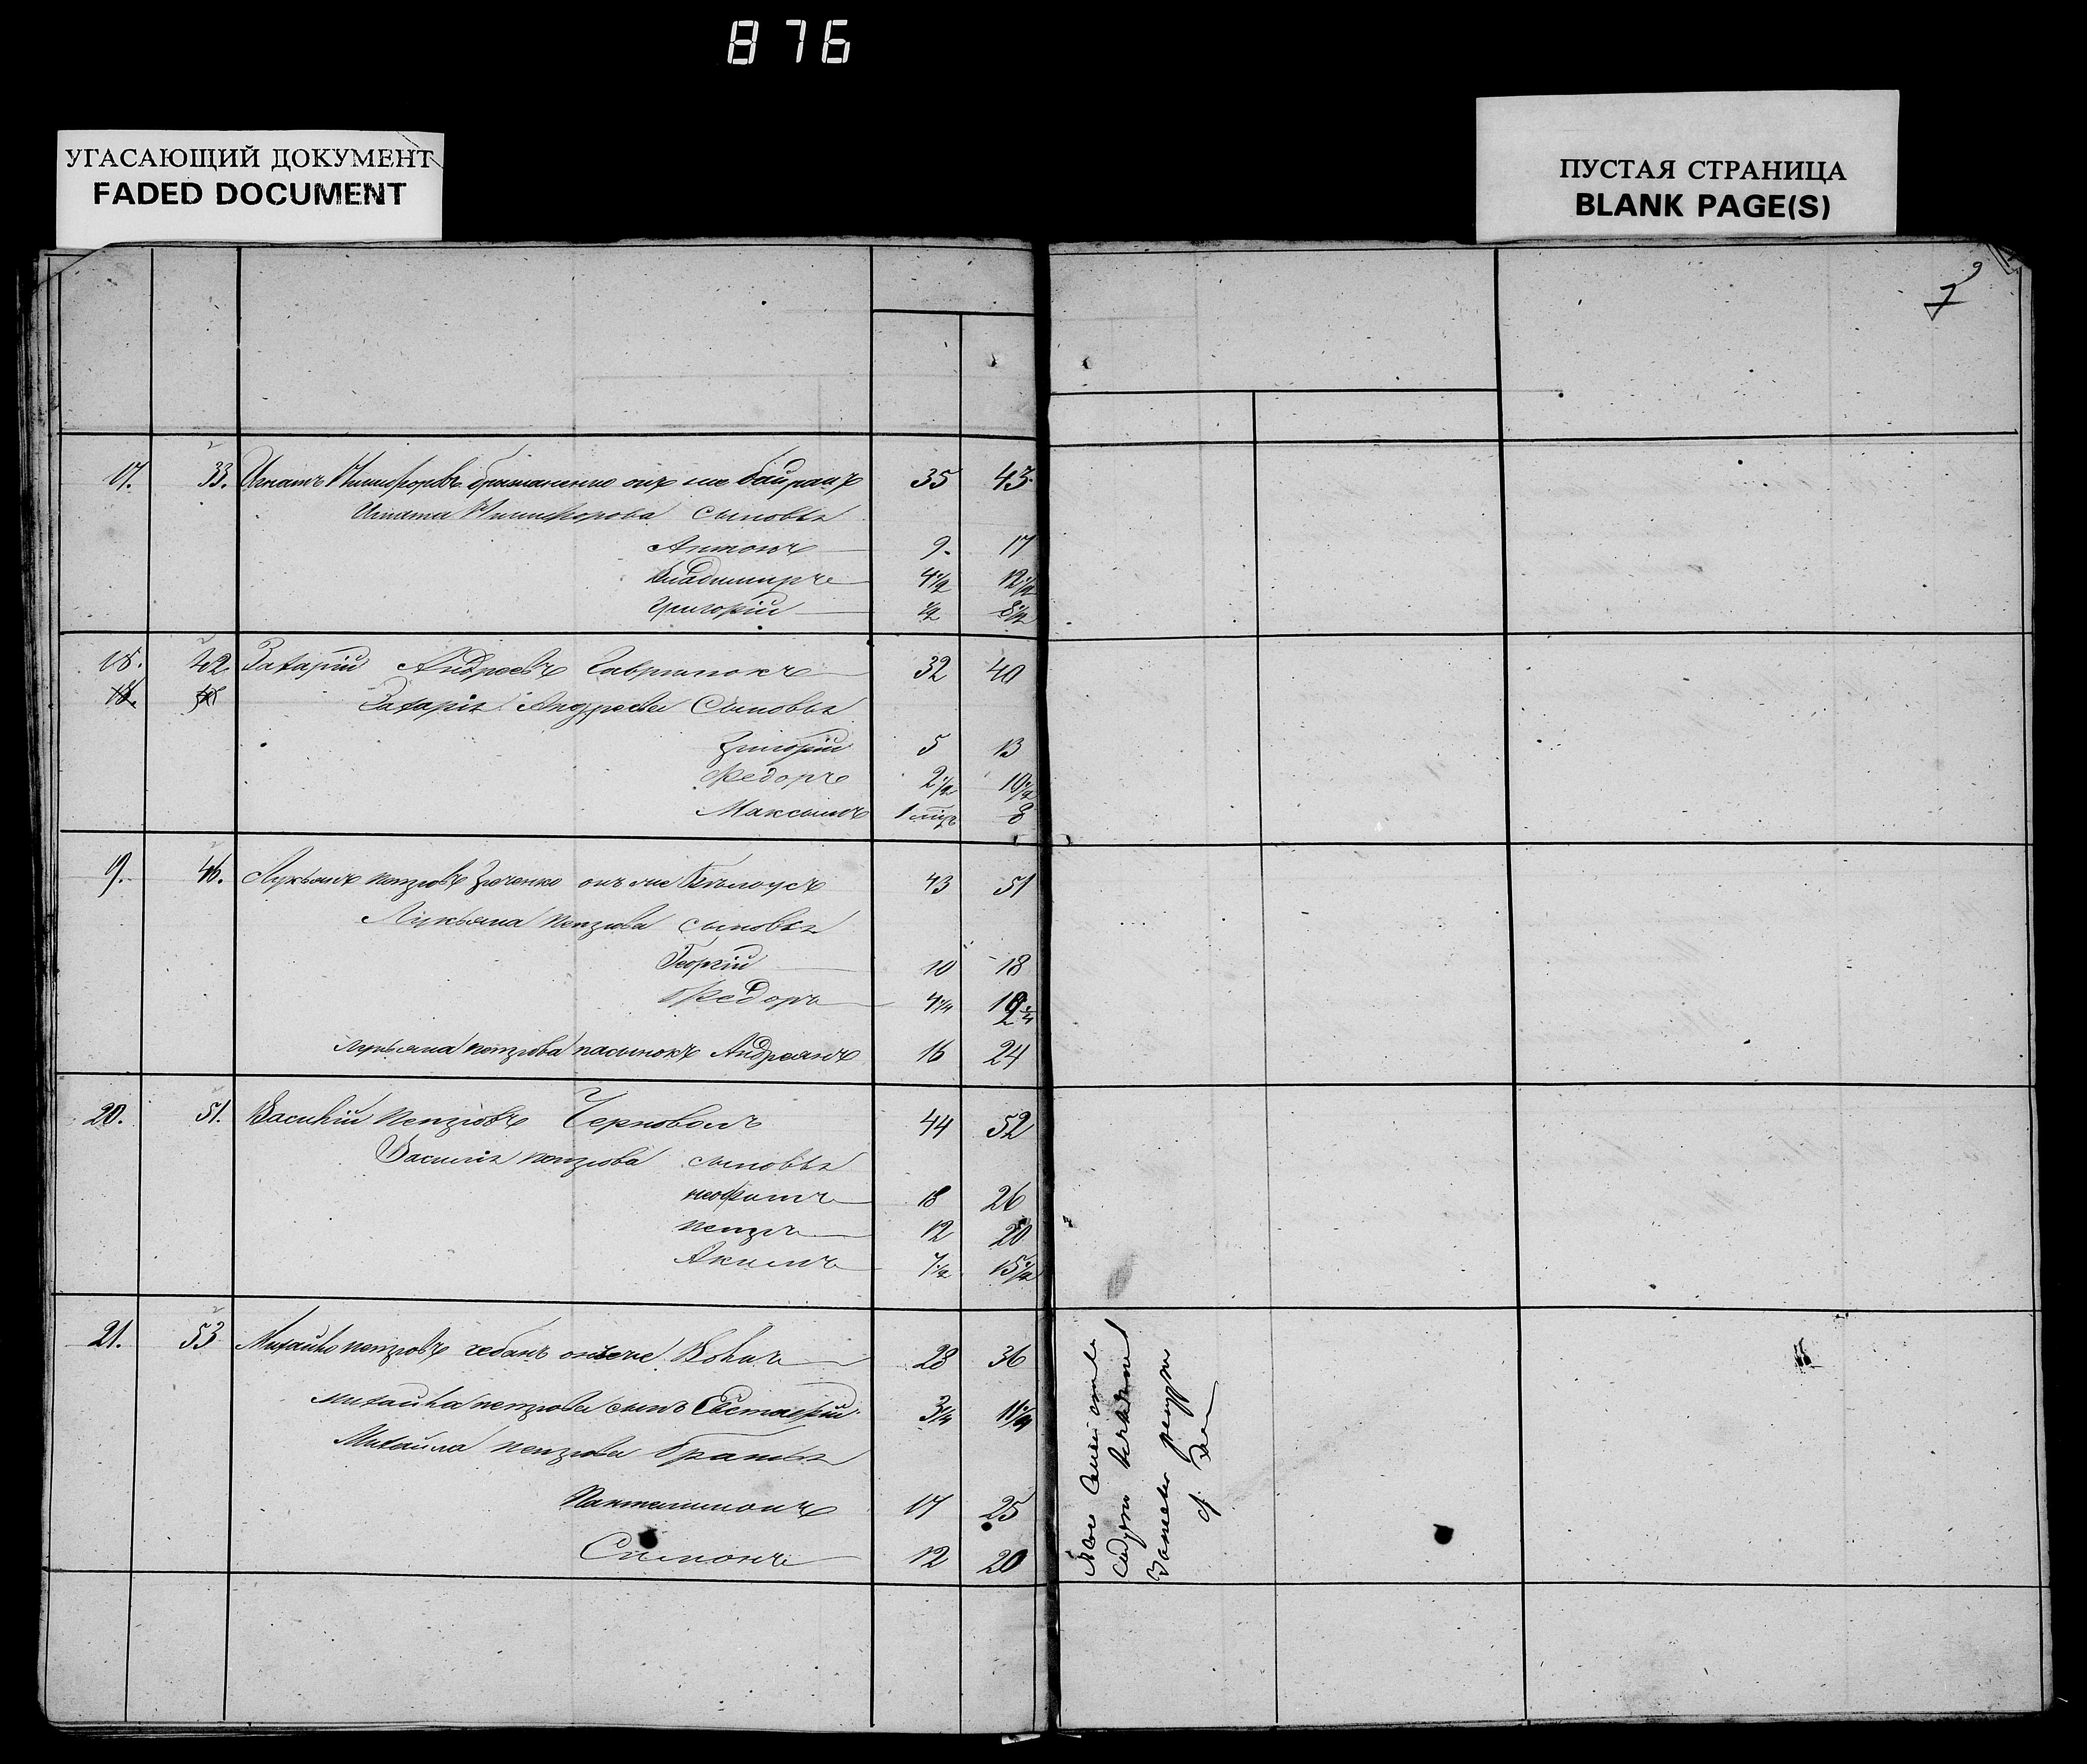 876
УГАСАЮЩИЙ ДОКУМЕНТ
FADED DOCUMENT
ПУСТАЯ СТРАНИЦА
BLANK PAGE(S)
9
7
17. 33. Игнатъ Никифоровъ онъ же байрацъ 35 43
Игната Никифорова сыновья
Антонъ 9. 17
Владимиръ 4½ 12½
Григорій ½ 8½
18. 42 Захарій Андреевъ Гаврилюкъ 32 40
18.
Захарія Андреева Сыновья
Григорій 5 13
Федоръ 2½ 10½
Максымъ 1 8
19. 46. Лукьянъ петровъ онъ же Белоусъ 43 51
Лукьяна петрова сыновья
Георгій 10 18
Федоръ 4¼ 12¼
Лукьяна петрова пасынокъ Андреянъ 16 24
20. 51. Василій петровъ Черноволъ 44 52
Василія петрова сыновья
неофитъ 18 26
петръ 12 20
Акимъ 7½ 15½
21. 53 Михайло петровъ чебанъ онъ же 28 36
михайла петрова сынъ Евстафій 3¼ 11¼
Михайла петрова братья
Пантелимонъ 17 25
Симонъ 12 20